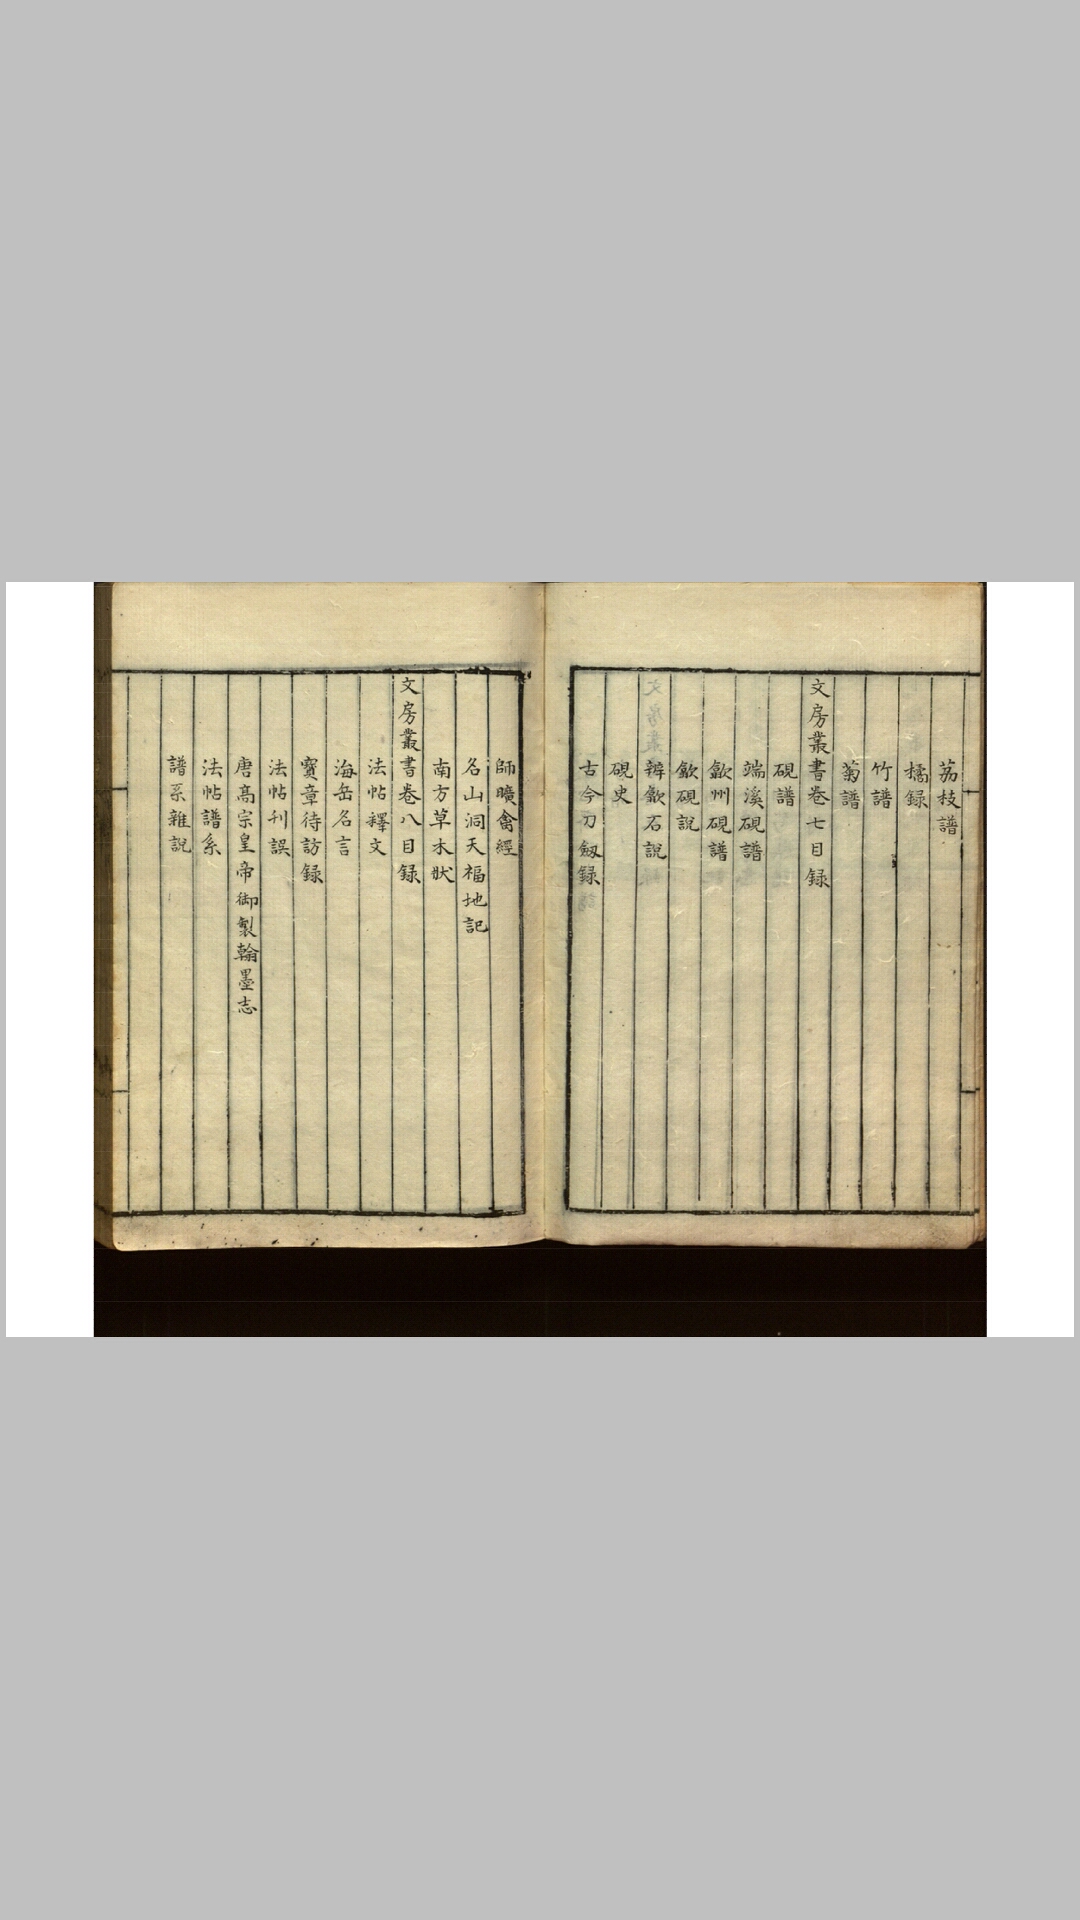 茘枝譜
橘録
竹譜
菊譜
文房叢書卷七目録
硯譜
端溪硯譜
歙州硯譜
歙硯說
辨歙石說
硯史
古今刀劔録
師曠禽經
名山洞天福地記
南方草木狀
文房叢書卷八目録
法帖釋文
海岳名言
寶章待訪録
法帖刊誤
唐高宗皇帝御製翰墨志
法帖譜系
譜系雜說